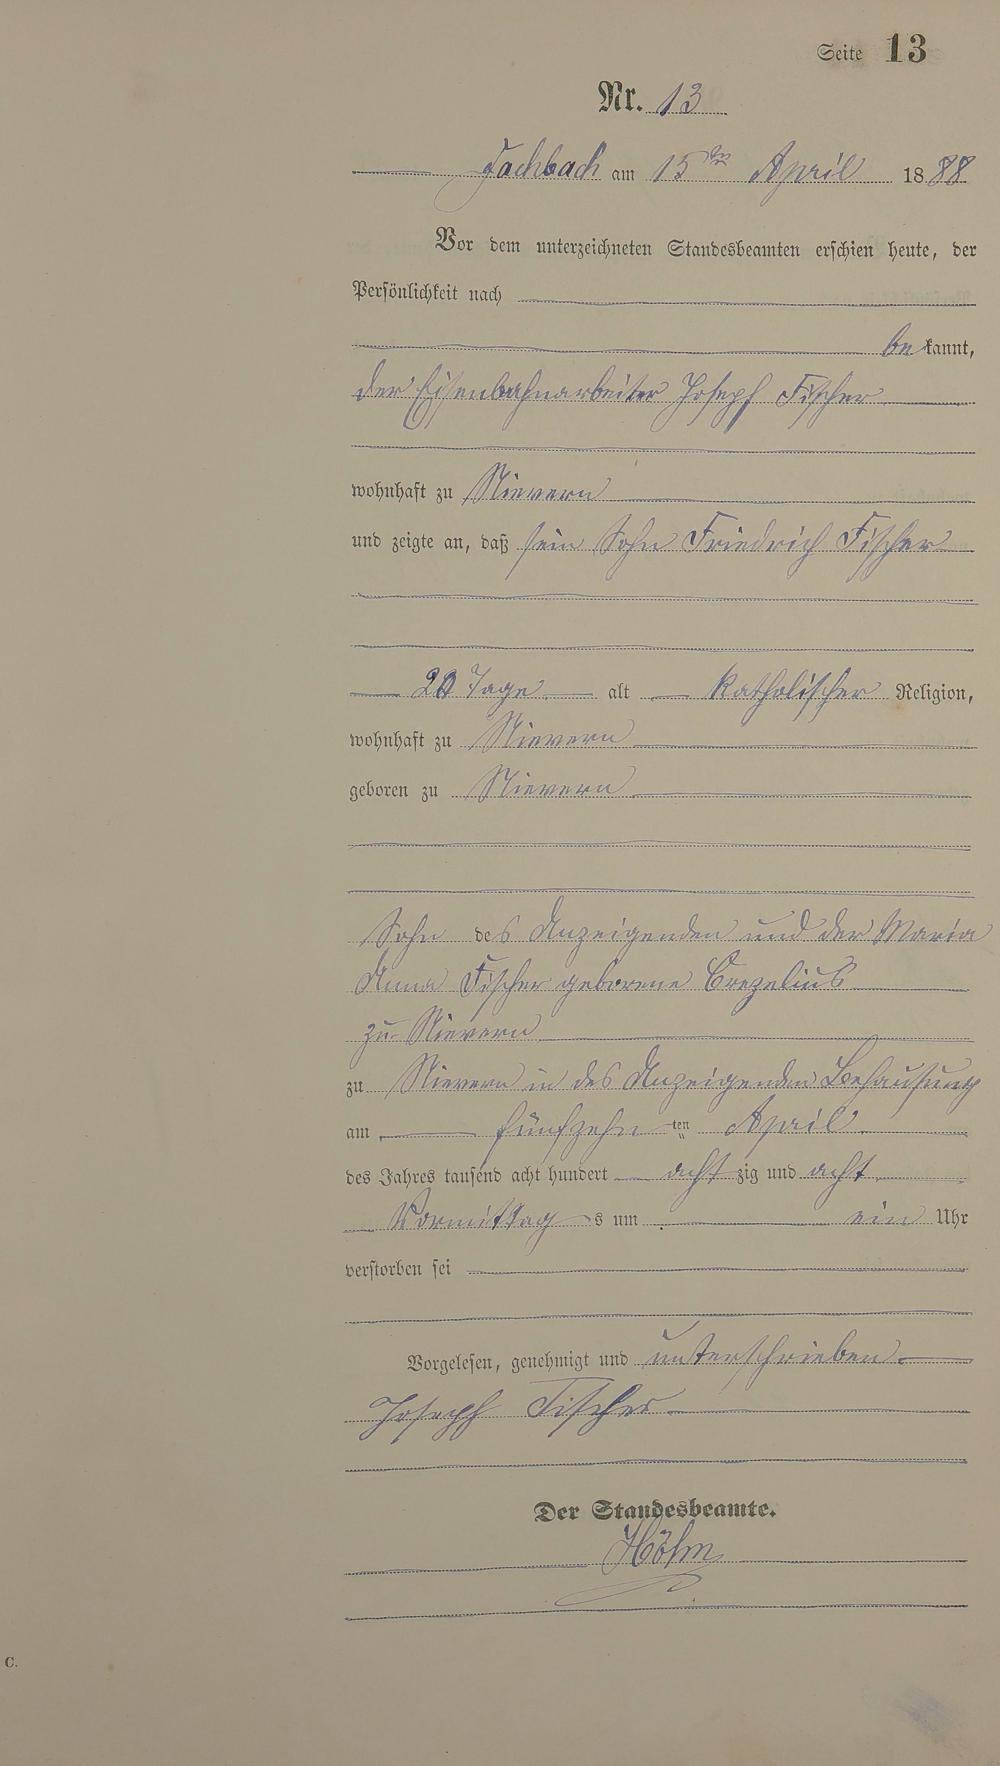 Seite 13
Nr. 13
Fachbach am 15ten April 1888
Vor dem unterzeichneten Standesbeamten erschien heute, der
Persönlichkeit nach
bekannt,
der Eisenbahnarbeiter Joseph Fischer
wohnhaft zu Nievern
und zeigte an, daß sein Sohn Friedrich Fischer
Tage alt katholischer Religion,
wohnhaft zu Nievern
geboren zu Nievern
Sohn des Anzeigenden und der Maria
Anna Fischer geborene Crezelius
zu Nievern
zu Nievern in des Anzeigenden Behausung
am fünfzehnten April
des Jahres tausend acht hundert achtzig und acht
Vormittags um ein Uhr
verstorben sei
Vorgelesen, genehmigt und unterschrieben
Joseph Fischer
Der Standesbeamte.
Höhn
C.